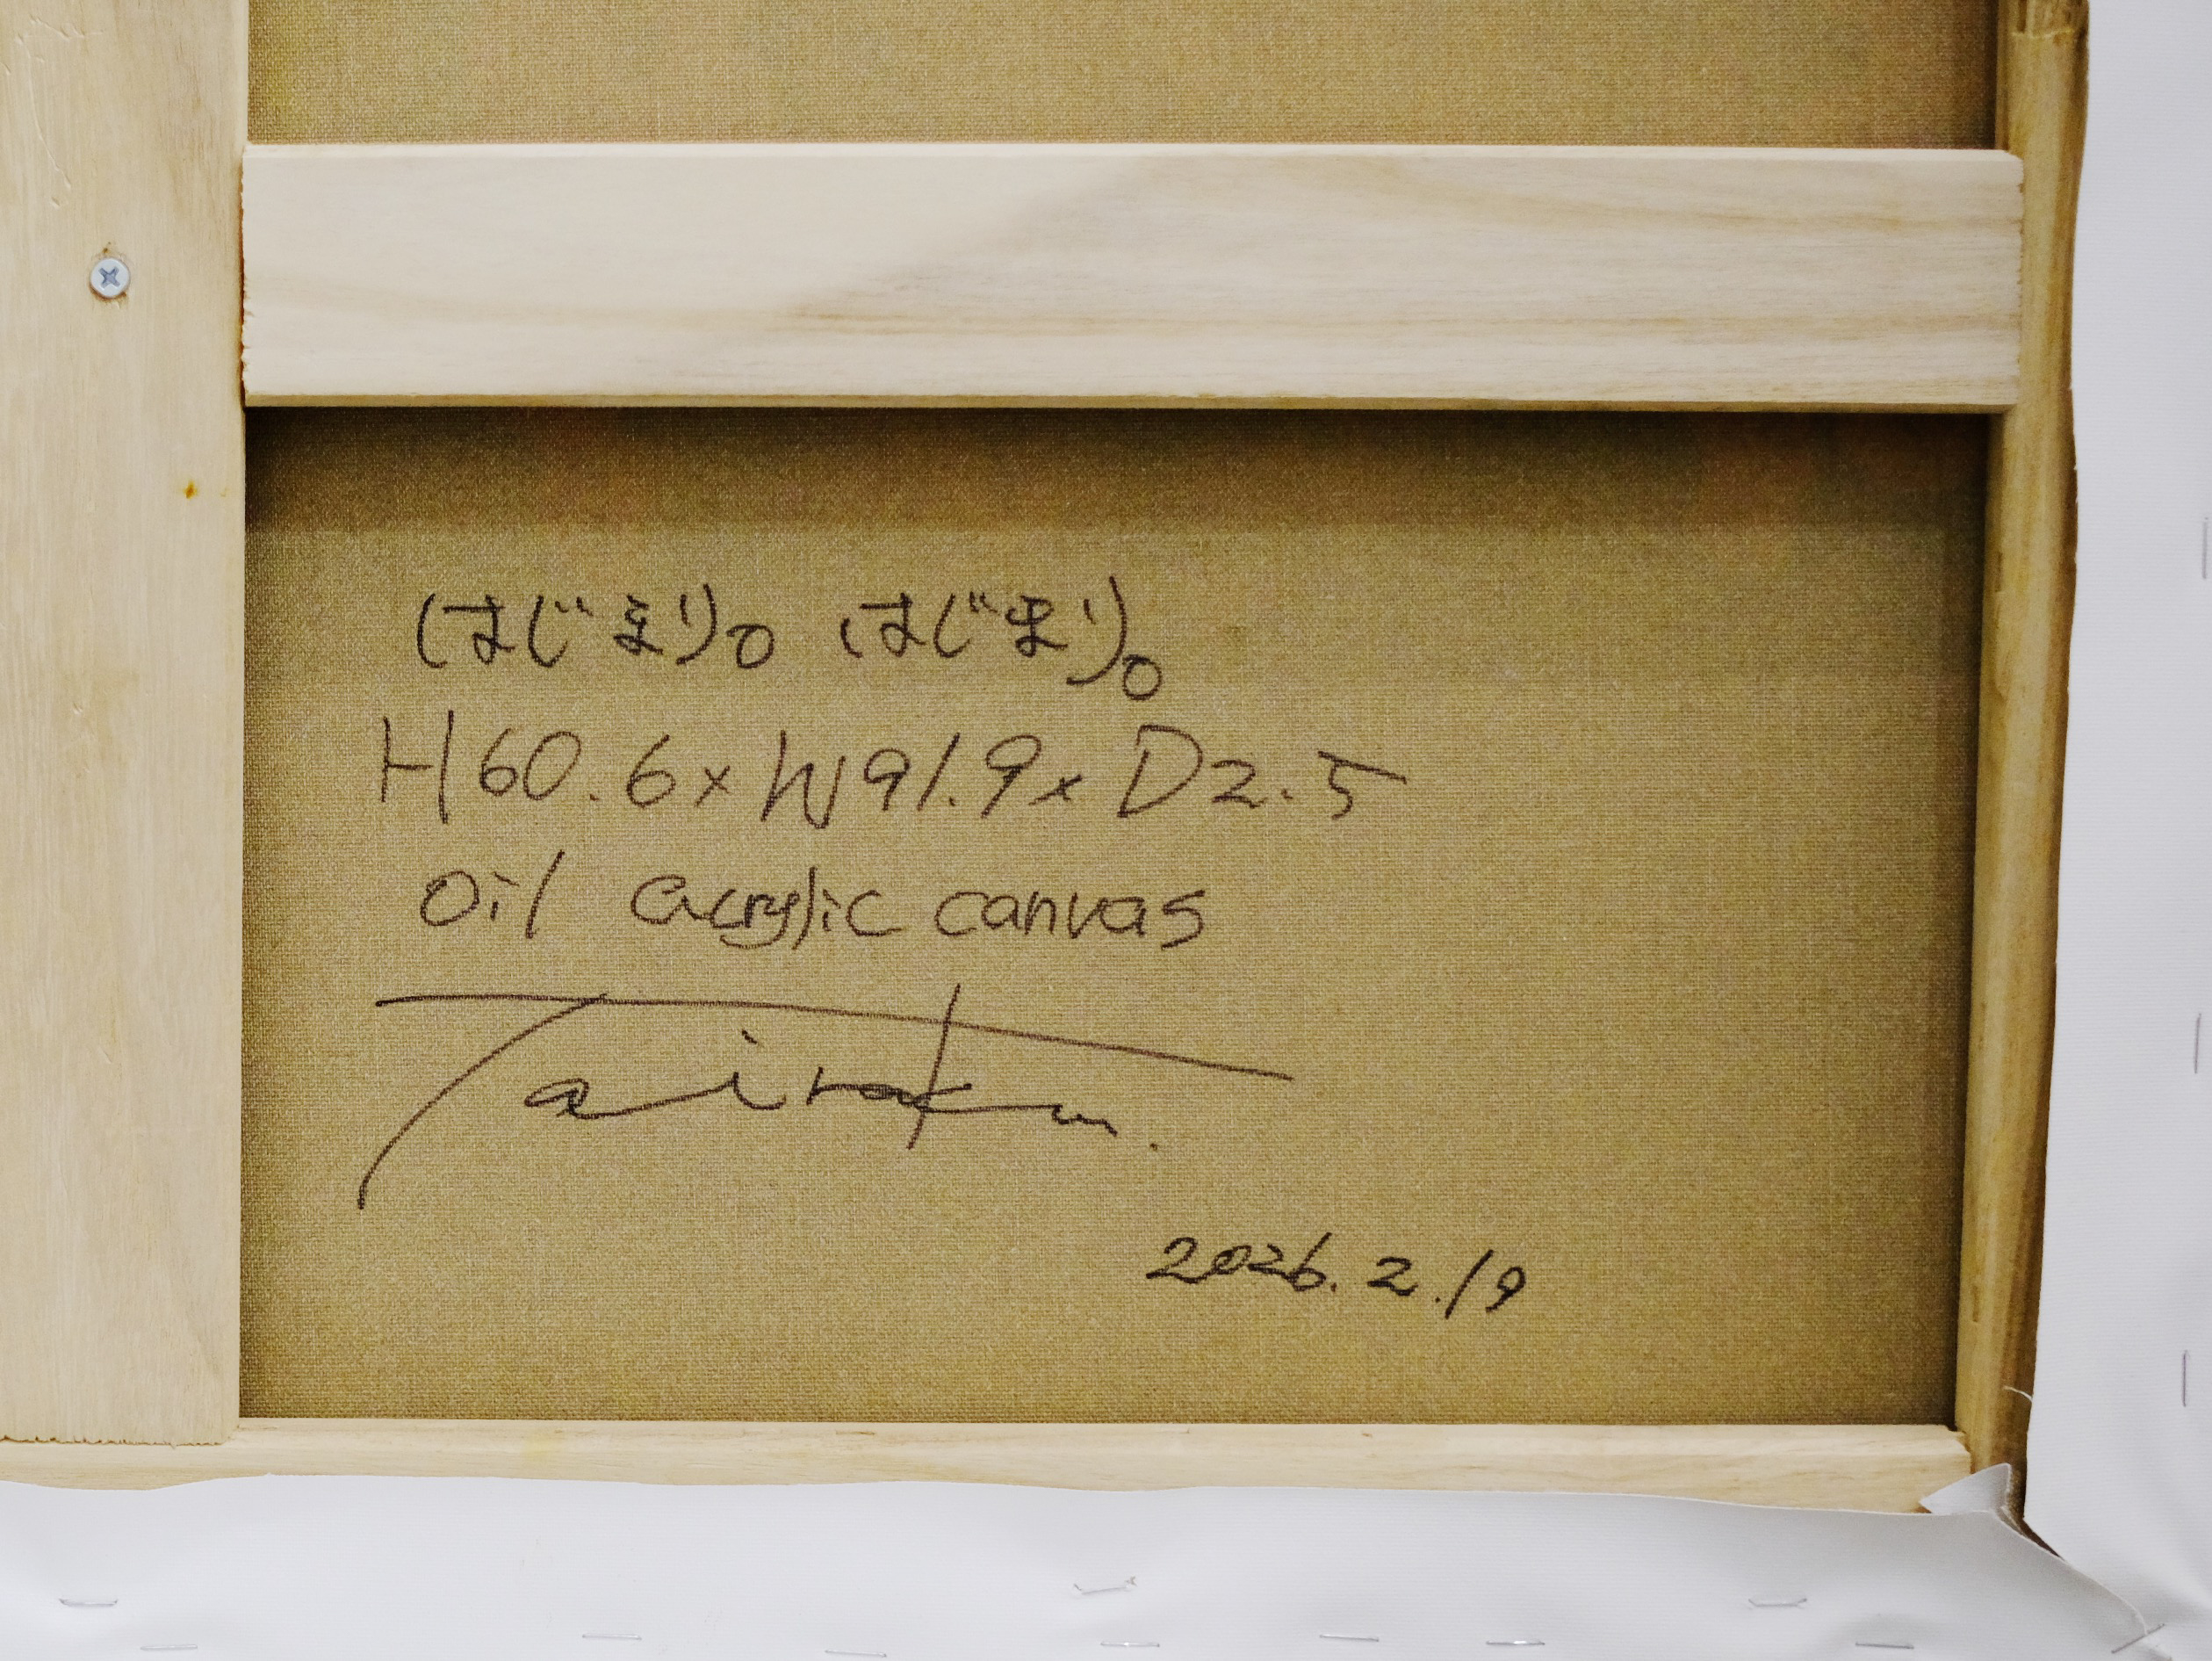 はじまり。はじまり。
H60.6×W91.9×D2.5
Oil acrylic canvas
Tairaku.
2026.2.19